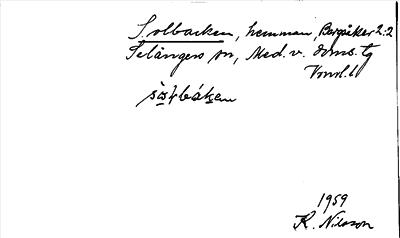 Solbacken, hemman, Bergsåker 2:2
Selångers sn, Med. v. doms. tg
Vnrl. l
1959
K. Nilsson